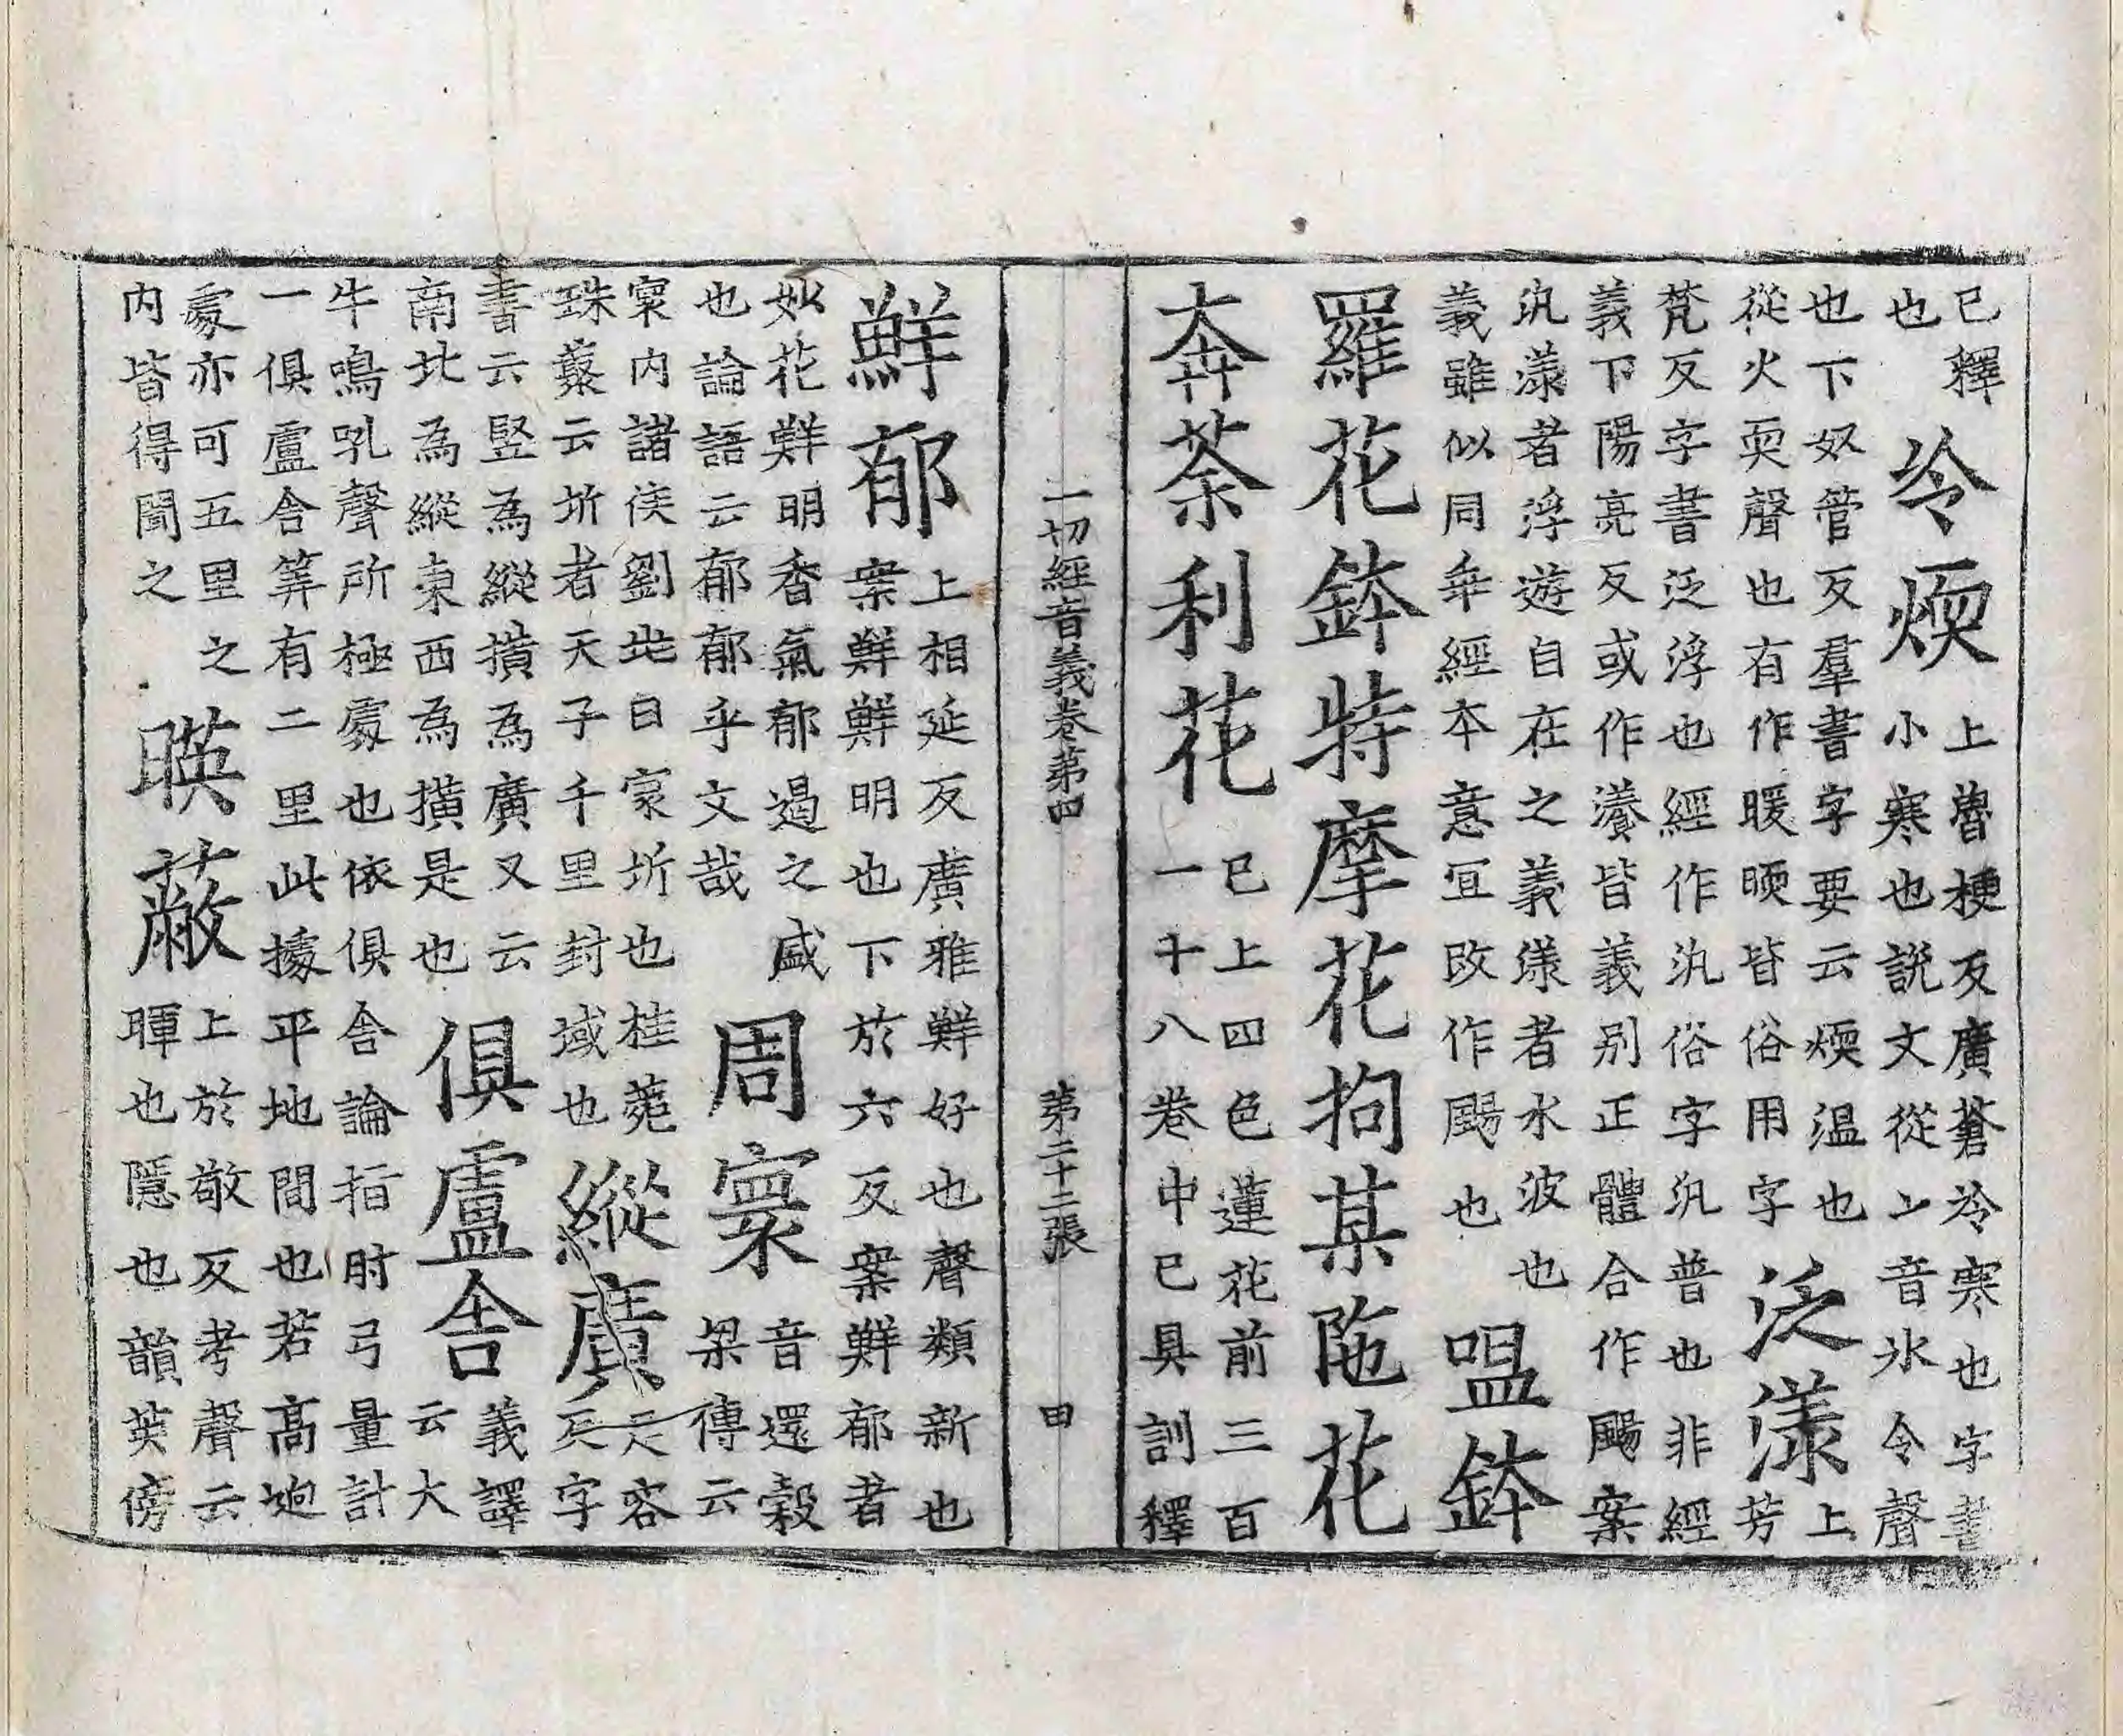 已釋
也
冷煗
上魯梗反廣蒼冷寒也字書
小寒也說文從冫音氷令聲
也下奴管反羣書字要云煗溫也
從火耎聲也有作暖㬉皆俗用字
泛漾
上
芳
梵反字書泛浮也經作汎俗字汎普也非經
義下陽亮反或作瀁皆義別正體合作颺案
汎漾者浮遊自在之義漾者水波也
義雖似同乖經本意宜改作颺也
嗢鉢
羅花鉢特摩花拘某陁花
奔荼利花
已上四色蓮花前三百
一十八卷中已具訓釋
一切經音義卷第四 第二十二張 田
鮮郁
上相延反廣雅鮮好也聲類新也
案鮮鮮明也下於六反案鮮郁者
妙花鮮明香氣郁遏之盛
也論語云郁郁乎文哉
周寰
音還穀
梁傳云
寰內諸侯劉兆曰寰圻也桂菀
珠藂云圻者天子千里封域也
縱廣
足容
反字
書云竪為縱撗為廣又云
南北為縱東西為撗是也
俱盧舍
義譯
云大
牛鳴吼聲所極處也依俱舍論指肘弓量計
一俱盧舍筭有二里此據平地間也若高逈
處亦可五里之
內皆得聞之
暎蔽
上於敬反考聲云
暉也隱也韻英傍